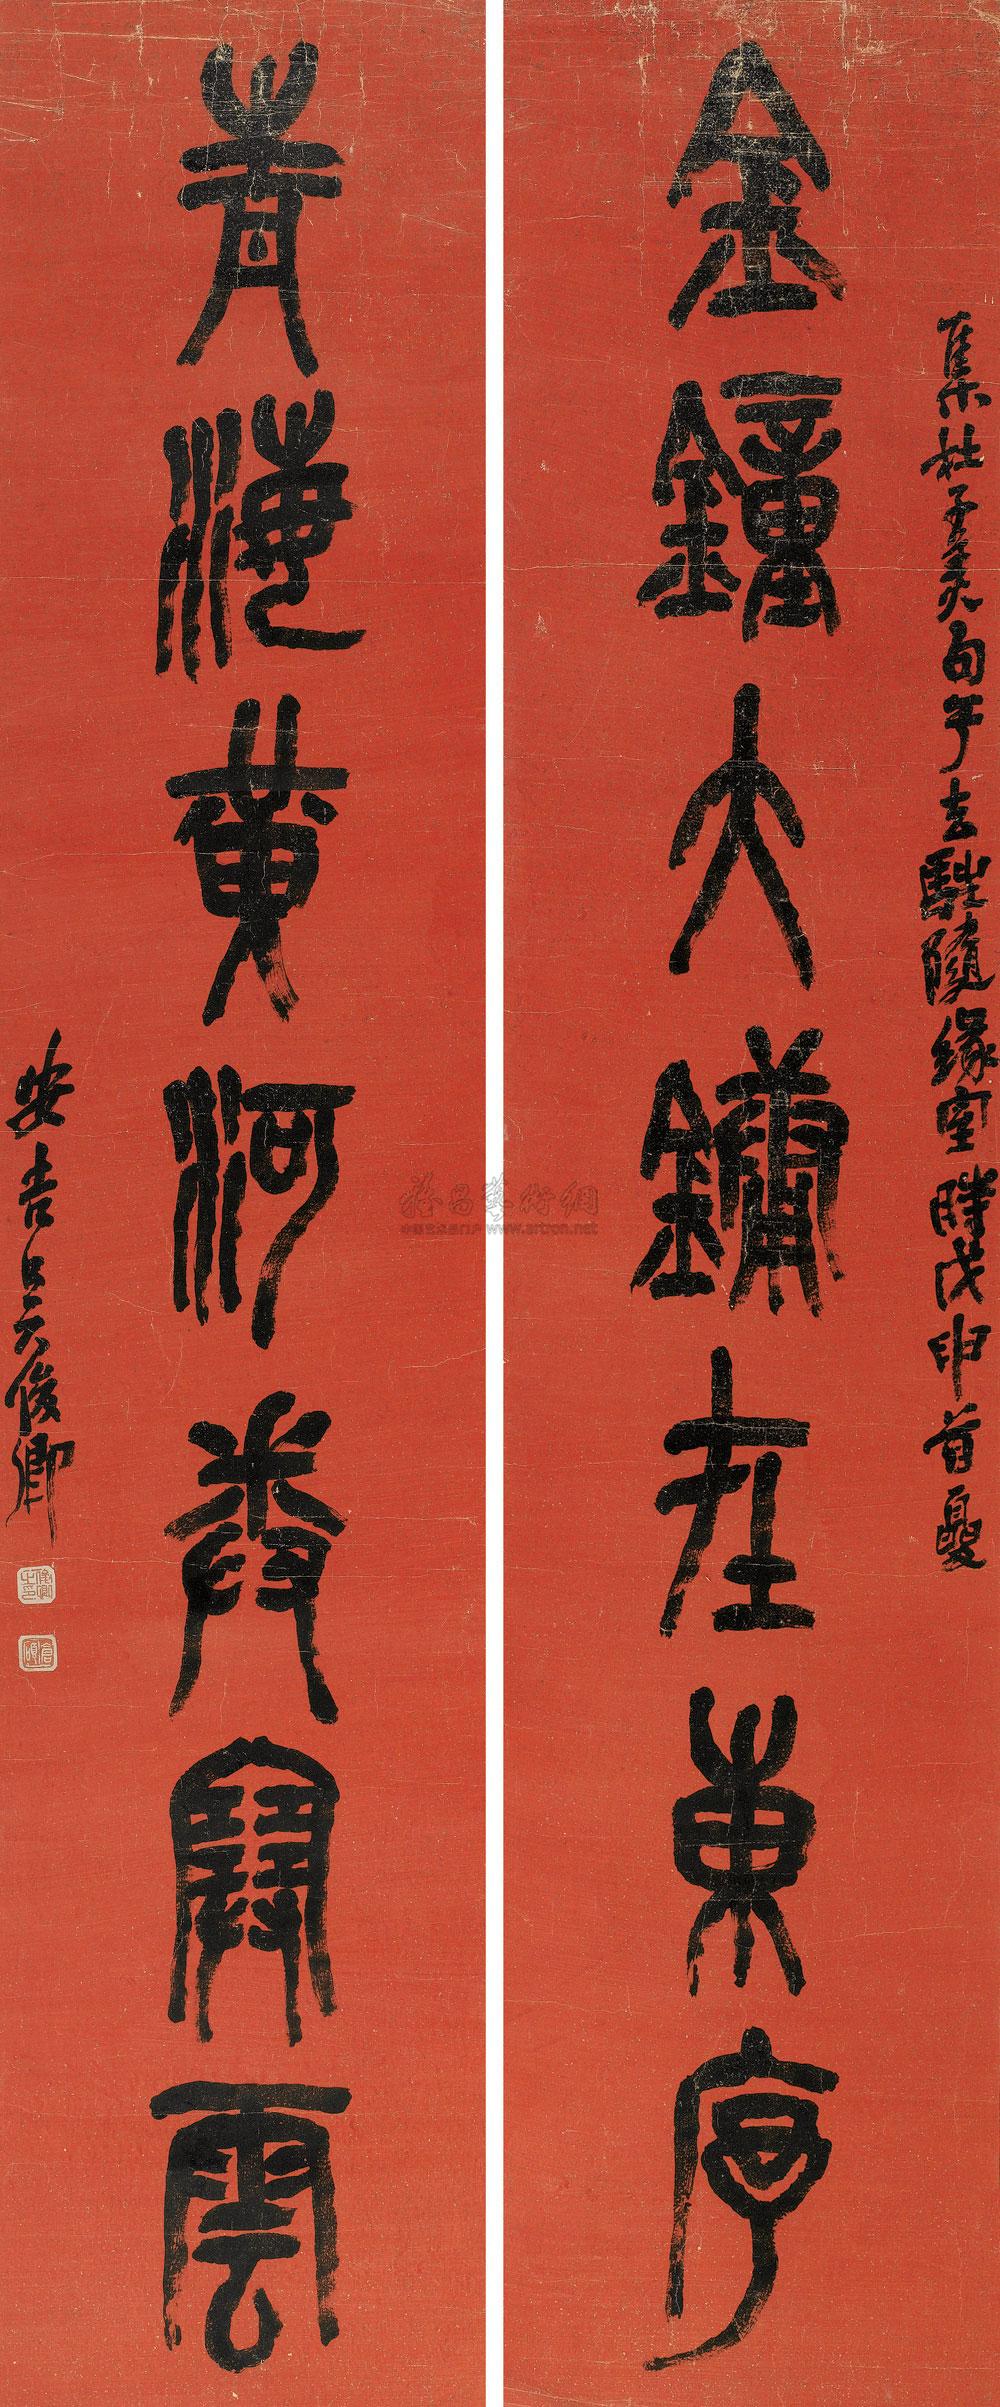 金鐘大鏞在東序
集杜子美句于去駐隨緣室時戊申首夏
青海黃河卷塞雲
安吉吳俊卿
俊卿之印
倉碩
雅昌藝術網
www.artron.net